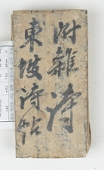 附雜詩
東坡詩帖